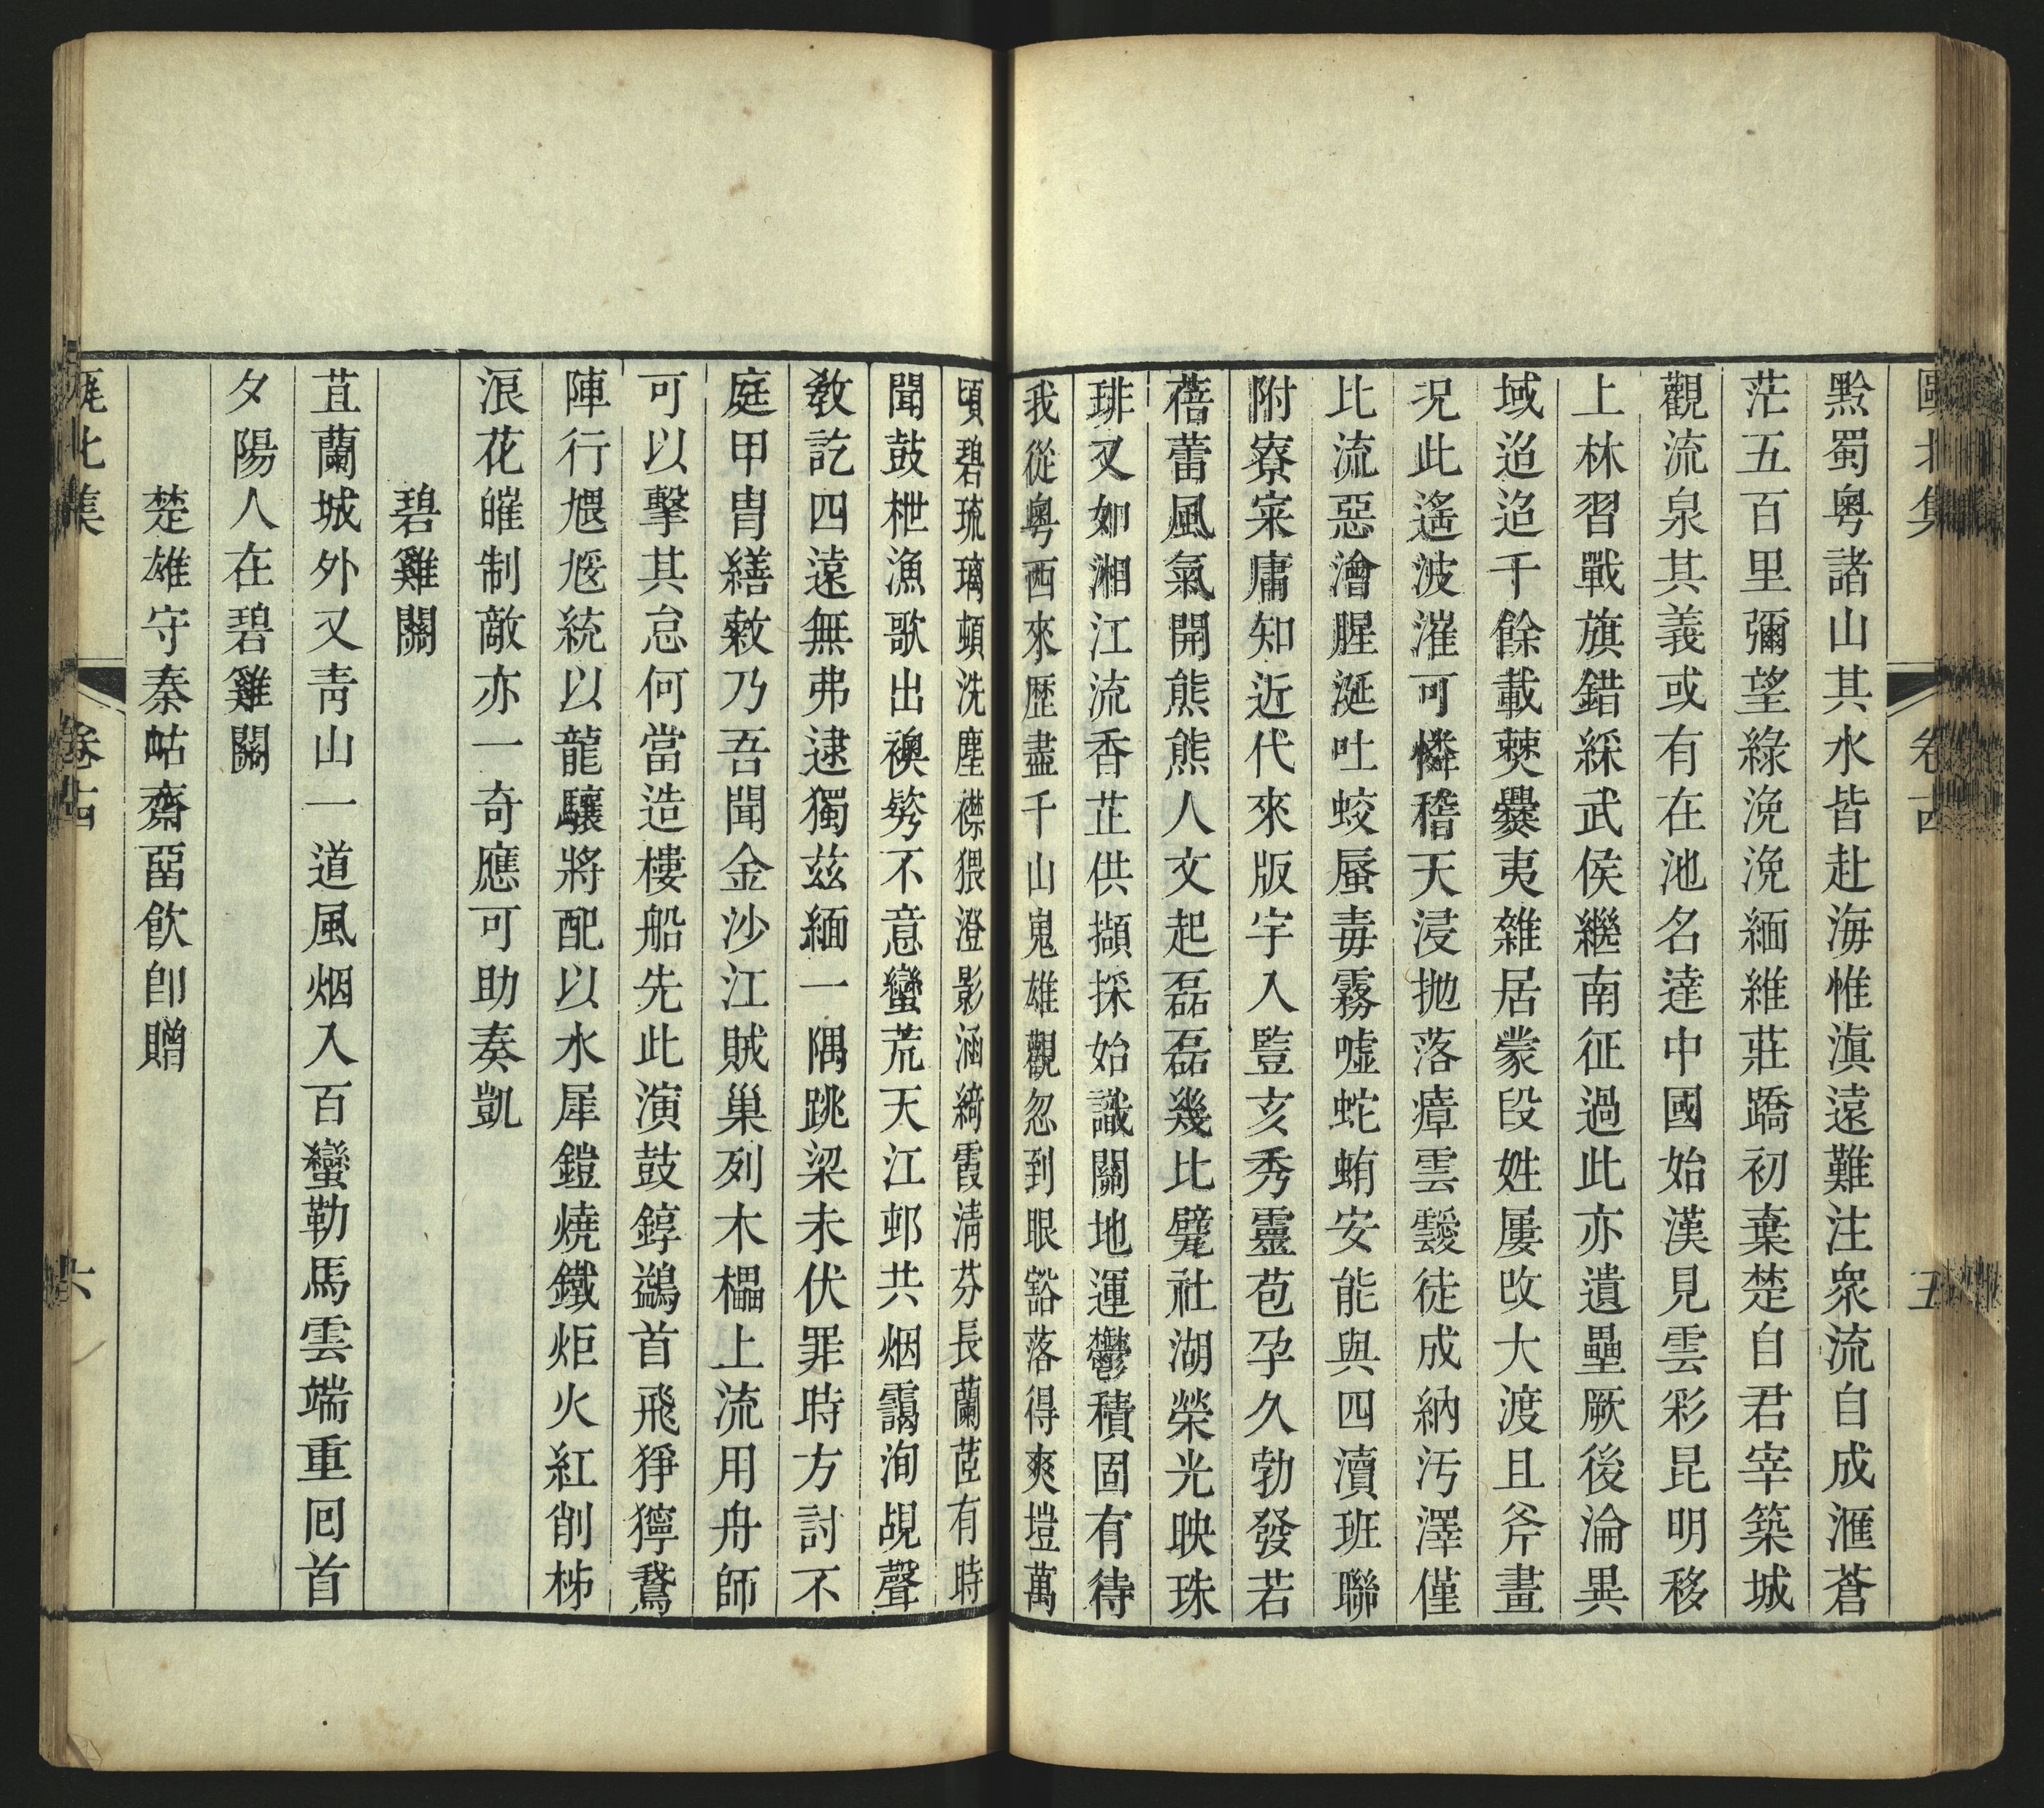 甌北集 卷古 五
黔蜀粵諸山其水皆赴海惟滇遠難注衆流自成滙蒼
茫五百里彌望綠浼浼緬維莊蹻初棄楚自君宰築城
觀流泉其義或有在池名達中國始漢見雲彩昆明移
上林習戰旗錯綵武侯繼南征過此亦遺壘厥後淪異
域迨迨千餘載僰爨夷雜居蒙段姓屢改大渡且斧畫
况此遙波漼可憐稽天浸拋落瘴雲靉徒成納汚澤僅
比流惡澮腥涎吐蛟蜃毒霧噓蛇蛕安能與四瀆班聯
附寮寀庸知近代來版宇入豎亥秀靈苞孕久勃發若
蓓蕾風氣開熊熊人文起磊磊幾比甓社湖榮光映珠
琲又如湘江流香芷供擷採始識關地運鬱積固有待
我從粵西來歷盡千山嵬雄觀忽到眼豁落得爽塏萬
頃碧琉璃頓洗塵襟猥澄影涵綺霞淸芬長蘭茝有時
聞鼓枻漁歌出襖䯻不意蠻荒天江邨共烟靄洵覘聲
敎訖四遠無弗逮獨玆緬一隅跳梁未伏罪時方討不
庭甲冑繕敹乃吾聞金沙江賊巢列木櫑上流用舟師
可以擊其怠何當造樓船先此演鼓錞鷁首飛猙獰鵞
陣行尰尰統以龍驤將配以水犀鎧燒鐵炬火紅削柹
浪花皠制敵亦一奇應可助奏凱
碧雞關
苴蘭城外又靑山一道風烟入百蠻勒馬雲端重回首
夕陽人在碧雞關
楚雄守秦岵齋畱飮卽贈
甌北集 卷古 六